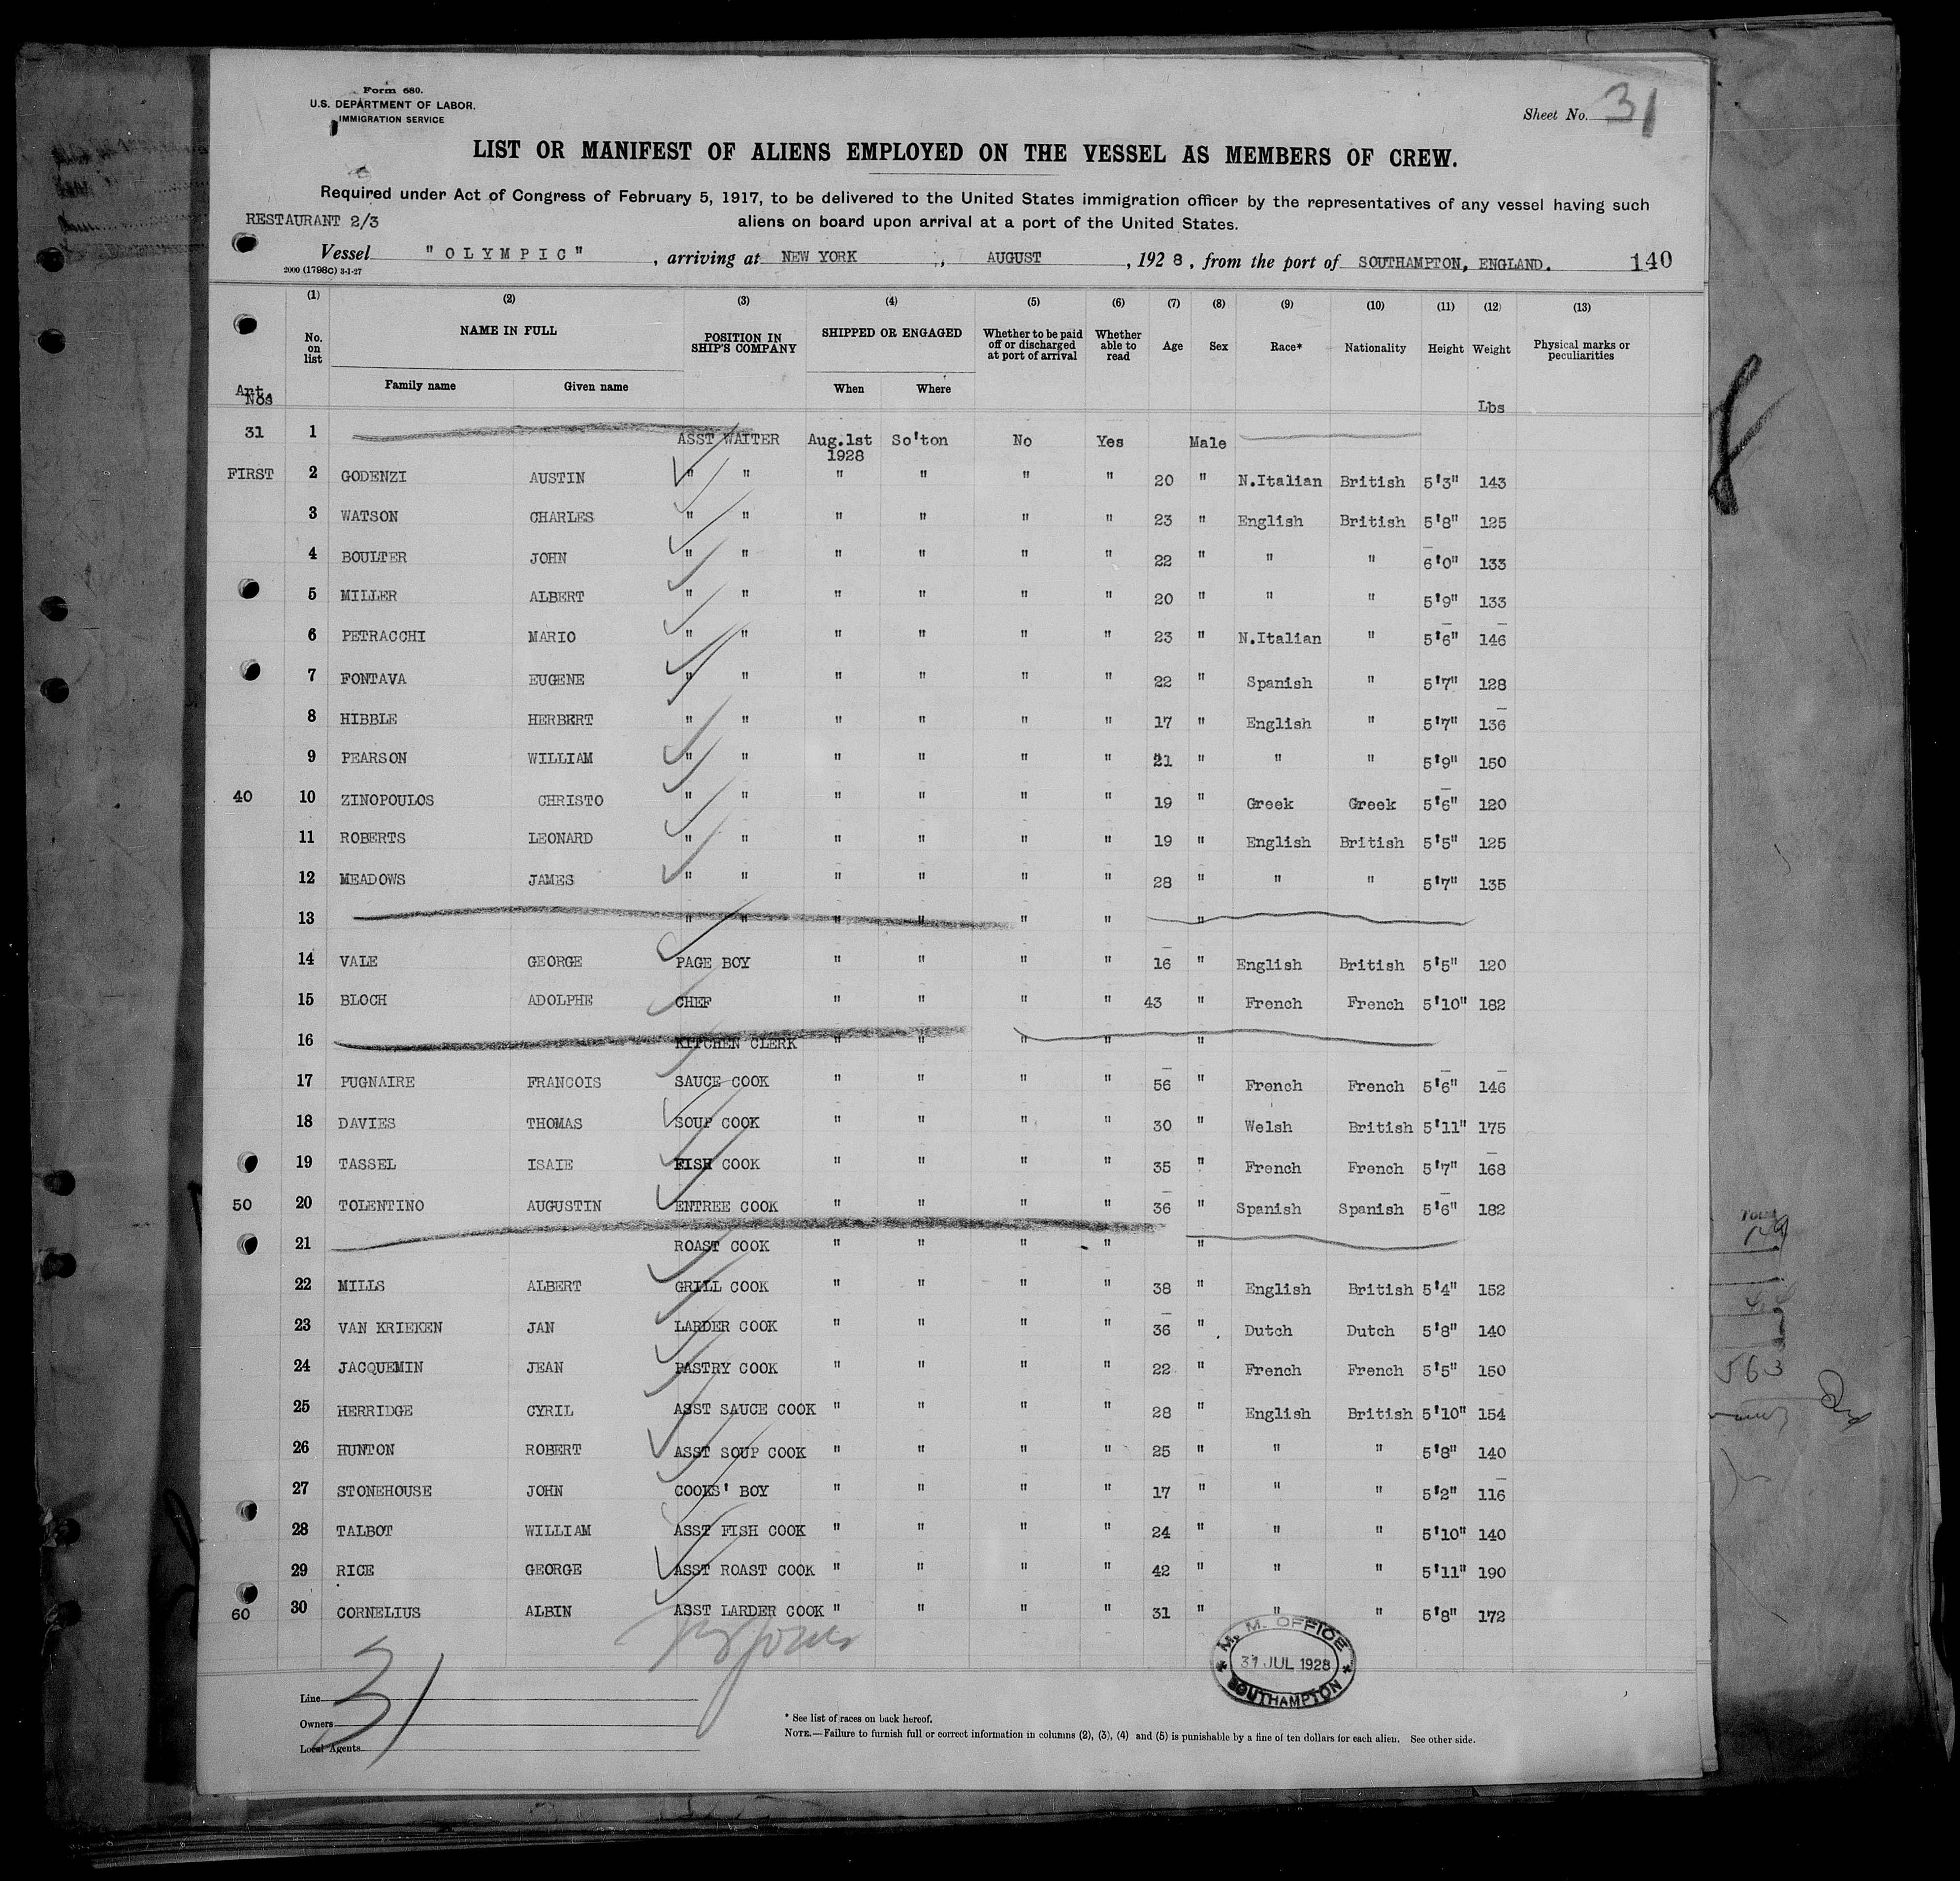 Form 680.
U.S. DEPARTMENT OF LABOR.
IMMIGRATION SERVICE
Sheet No. 31
LIST OR MANIFEST OF ALIENS EMPLOYED ON THE VESSEL AS MEMBERS OF CREW.
Required under Act of Congress of February 5, 1917, to be delivered to the United States immigration officer by the representatives of any vessel having such
RESTAURANT 2/3 aliens on board upon arrival at a port of the United States.
Vessel "OLYMPIC", arriving at NEW YORK, AUGUST, 1928, from the port of SOUTHAMPTON, ENGLAND. 140
2000 (1798C) 3-1-27
(1) (2) (3) (4) (5) (6) (7) (8) (9) (10) (11) (12) (13)
No. on list NAME IN FULL POSITION IN SHIP'S COMPANY SHIPPED OR ENGAGED Whether to be paid off or discharged at port of arrival Whether able to read Age Sex Race* Nationality Height Weight Physical marks or peculiarities
Ant. Nos Family name Given name When Where Lbs
31 1 ASST WAITER Aug.1st 1928 So'ton No Yes Male
FIRST 2 GODENZI AUSTIN " " " " " " 20 " N.Italian British 5'3" 143
3 WATSON CHARLES " " " " " " 23 " English British 5'8" 125
4 BOULTER JOHN " " " " " " 22 " " " 6'0" 133
5 MILLER ALBERT " " " " " " 20 " " " 5'9" 133
6 PETRACCHI MARIO " " " " " " 23 " N.Italian " 5'6" 146
7 FONTAVA EUGENE " " " " " " 22 " Spanish " 5'7" 128
8 HIBBLE HERBERT " " " " " " 17 " English " 5'7" 136
9 PEARSON WILLIAM " " " " " " 21 " " " 5'9" 150
40 10 ZINOPOULOS CHRISTO " " " " " " 19 " Greek Greek 5'6" 120
11 ROBERTS LEONARD " " " " " " 19 " English British 5'5" 125
12 MEADOWS JAMES " " " " " " 28 " " " 5'7" 135
13 " " " " " " "
14 VALE GEORGE PAGE BOY " " " " 16 " English British 5'5" 120
15 BLOCH ADOLPHE CHEF " " " " 43 " French French 5'10" 182
16 KITCHEN CLERK " " " " "
17 PUGNAIRE FRANCOIS SAUCE COOK " " " " 56 " French French 5'6" 146
18 DAVIES THOMAS SOUP COOK " " " " 30 " Welsh British 5'11" 175
19 TASSEL ISAIE FISH COOK " " " " 35 " French French 5'7" 168
50 20 TOLENTINO AUGUSTIN ENTREE COOK " " " " 36 " Spanish Spanish 5'6" 182
21 ROAST COOK " " " " "
22 MILLS ALBERT GRILL COOK " " " " 38 " English British 5'4" 152
23 VAN KRIEKEN JAN LARDER COOK " " " " 36 " Dutch Dutch 5'8" 140
24 JACQUEMIN JEAN PASTRY COOK " " " " 22 " French French 5'5" 150
25 HERRIDGE CYRIL ASST SAUCE COOK " " " " 28 " English British 5'10" 154
26 HUNTON ROBERT ASST SOUP COOK " " " " 25 " " " 5'8" 140
27 STONEHOUSE JOHN COOKS' BOY " " " " 17 " " " 5'2" 116
28 TALBOT WILLIAM ASST FISH COOK " " " " 24 " " " 5'10" 140
29 RICE GEORGE ASST ROAST COOK " " " " 42 " " " 5'11" 190
60 30 CORNELIUS ALBIN ASST LARDER COOK " " " " 31 " " " 5'8" 172
M. M. OFFICE
31 JUL 1928
SOUTHAMPTON
31
Line
Owners
Local Agents
* See list of races on back hereof.
NOTE.—Failure to furnish full or correct information in columns (2), (3), (4) and (5) is punishable by a fine of ten dollars for each alien. See other side.
8
563